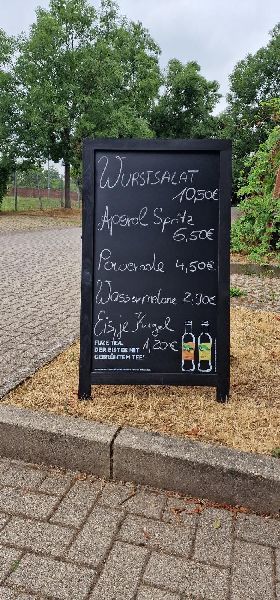 WURSTSALAT
10,50€
Aperol Spritz
6,50€
Powerade 4,50€
Wassermelone 2,70€
Eis, je Kugel
1,20€
FUZE TEA.
DER EISTEE MIT
GEBRÜHTEM TEE*